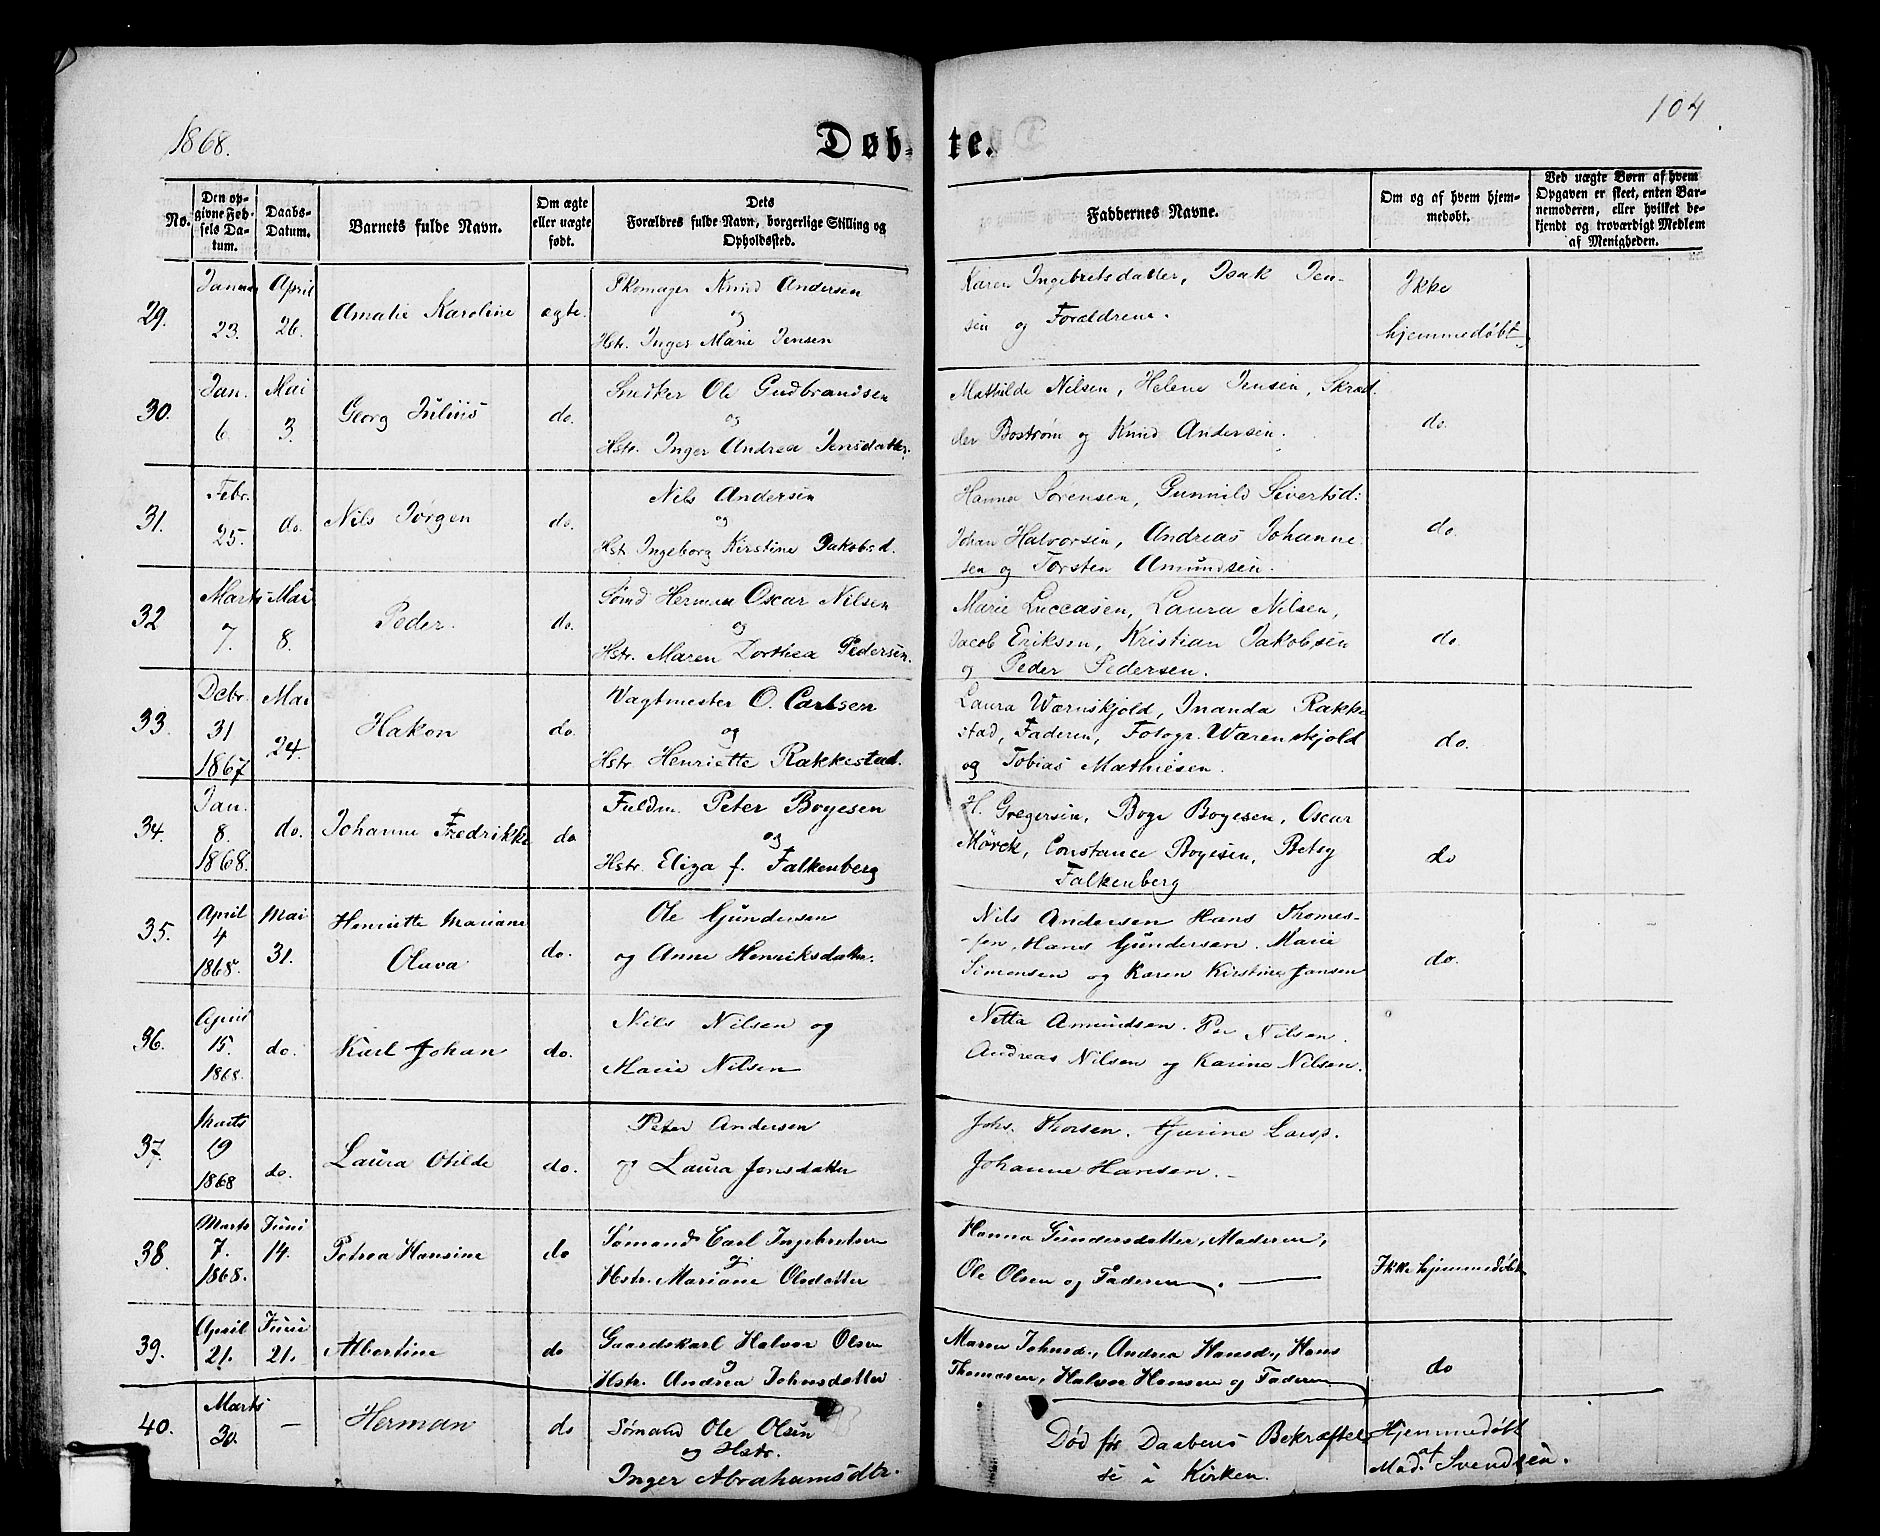 104
1868.
Døb-te.
No.
Den opgivne Fødsels Datum.
Daabs-Datum.
Barnets fulde Navn.
Om ægte eller uægte født.
Dets Forældres fulde Navn, borgerlige Stilling og Opholdssted.
Faddernes Navne.
Om og af hvem hjemmedøbt.
Ved uægte Børn af hvem Opgaven er skeet, enten Barnemoderen, eller hvilket bekjendt og troværdigt Medlem af Menigheden.
29.
Januar 23.
April 26.
Amalie Karoline
ægte.
Skomager Knud Andersen
og
Hstr. Inger Marie Jensen
Karen Ingebretsdatter, Isak Jen-
sen og Forældrene.
Ikke
hjemmedøbt.
30.
Jan. 6.
Mai 3.
Georg Julius
do.
Snedker Ole Gudbrandsen
og
Hstr. Inger Andrea Jensdatter.
Mathilde Nilsen, Helene Jensen, Skræd-
der Bostrøm og Knud Andersen.
do.
31.
Febr. 25.
do.
Nils Jørgen
do.
Nils Andersen
og
Hstr. Ingeborg Kirstine Jakobsd.
Hanna Sørensen, Gunnild Sivertsd:
Johan Halvorsen, Andreas Johanne
sen og Torsten Amundsen.
do.
32
Marts 7.
Mai 8.
Peder.
do.
Sømd Herman Oscar Nilsen
og
Hstr. Maren Dorthea Pedersen.
Marie Luccasen, Laura Nilsen,
Jacob Eriksen, Kristian Jakobsen
og Peder Pedersen.
do.
33.
Debr. 31 1867
Mai 24.
Hakon
do.
Vagtmester O. Carlsen
og
Hstr. Henriette Rakkestad.
Laura Wærnskjold, Inanda Rakke
stad, Faderen, Fotogr. Wærenskjold
og Tobias Mathiesen.
do.
34.
Jan. 8. 1868.
do.
Johanne Fredrikke
do
Fuldm. Peter Boyesen
og
Hstr. Eliza f. Falkenberg
H. Gregersen, Boye Boyesen, Oscar
Mørck, Constance Boyesen, Betsy
Falkenberg
do
35.
April 4 1868.
Mai 31.
Henriette Mariane
Oluva
do.
Ole Gundersen
og Anne Henriksdatter.
Nils Andersen Hans Thomes-
sen, Hans Gundersen. Marie
Simensen og Karen Kirstine Jansen
do.
36.
April 15. 1868.
do.
Karl Johan
do.
Nils Nilsen og
Marie Nilsen
Netta Amundsen. Per Nilsen.
Andreas Nilsen og Karine Nilsen.
37.
Marts 19 1868
do.
Laura Otilde
do.
Peter Andersen
og Laura Jonsdatter
Johs. Thorsen. Gurine Larsd.
Johanne Hansen.
38.
Marts 7. 1868.
Juni 14.
Petrea Hansine
do
Sømand Carl Ingebretsen
og
Hstr. Mariane Olsdatter
Hanna Gundersdatter, Moderen,
Ole Olsen og Faderen.
Ikke hjemmedøbt
39.
April 21.
Juni 21.
Albertine
do
Gaardskarl Halvor Olsen
og
Hstr. Andrea Johnsdatter
Maren Johnsd., Andrea Hansd., Hans
Thomasen, Halvor Hansen og Faderen
do
40.
Marts 30.
—
Herman
do
Sømand Ole Olsen
og Hstr.
Inger Abrahamsdtr.
Død før Daabens Bekræftel
se i Kirken.
Hjemmedøbt
af
Mad. Svendsen.